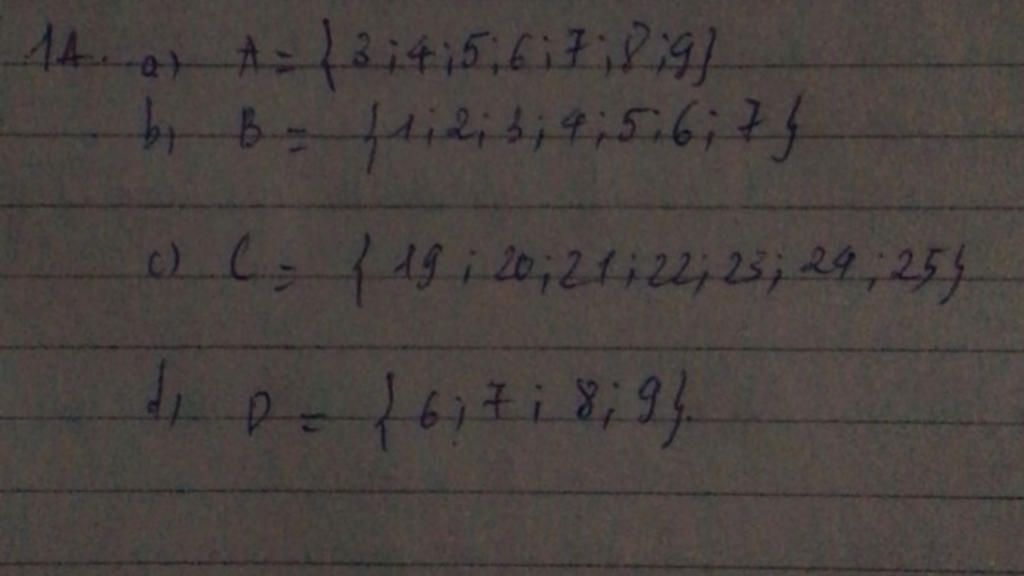 1A. a) A = {3;4;5;6;7;8;9}
b) B = {1;2;3;4;5;6;7}
c) C = {19;20;21;22;23;24;25}
d) D = {6;7;8;9}.